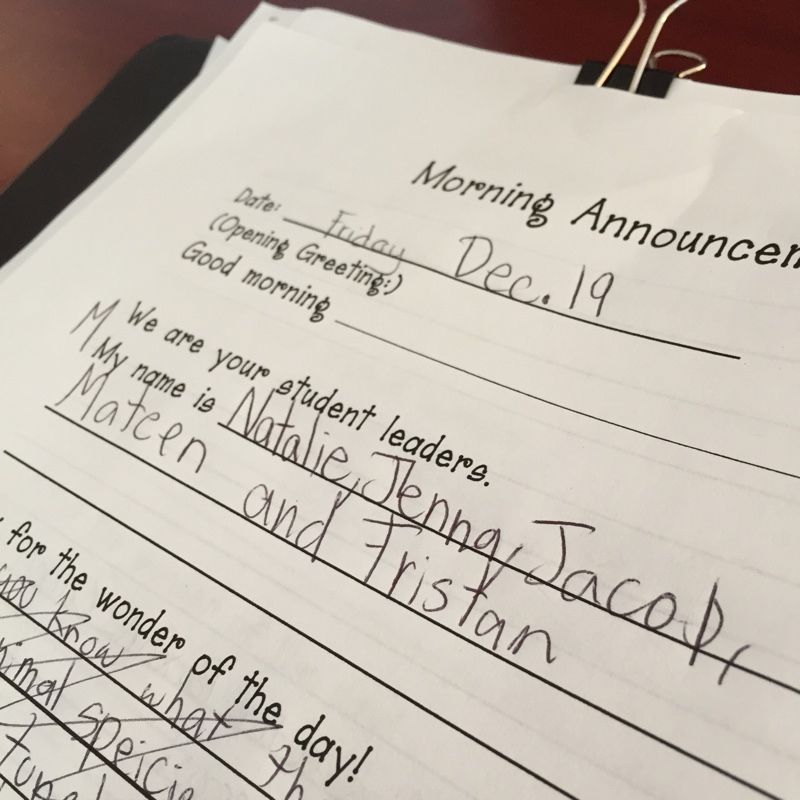 Morning Announcem
Date: Friday Dec. 19
(Opening Greeting:)
Good morning
We are your student leaders.
M
My name is Natalie, Jenna, Jacob,
Mateen and Tristan
for the wonder of the day!
you know what th
speicie